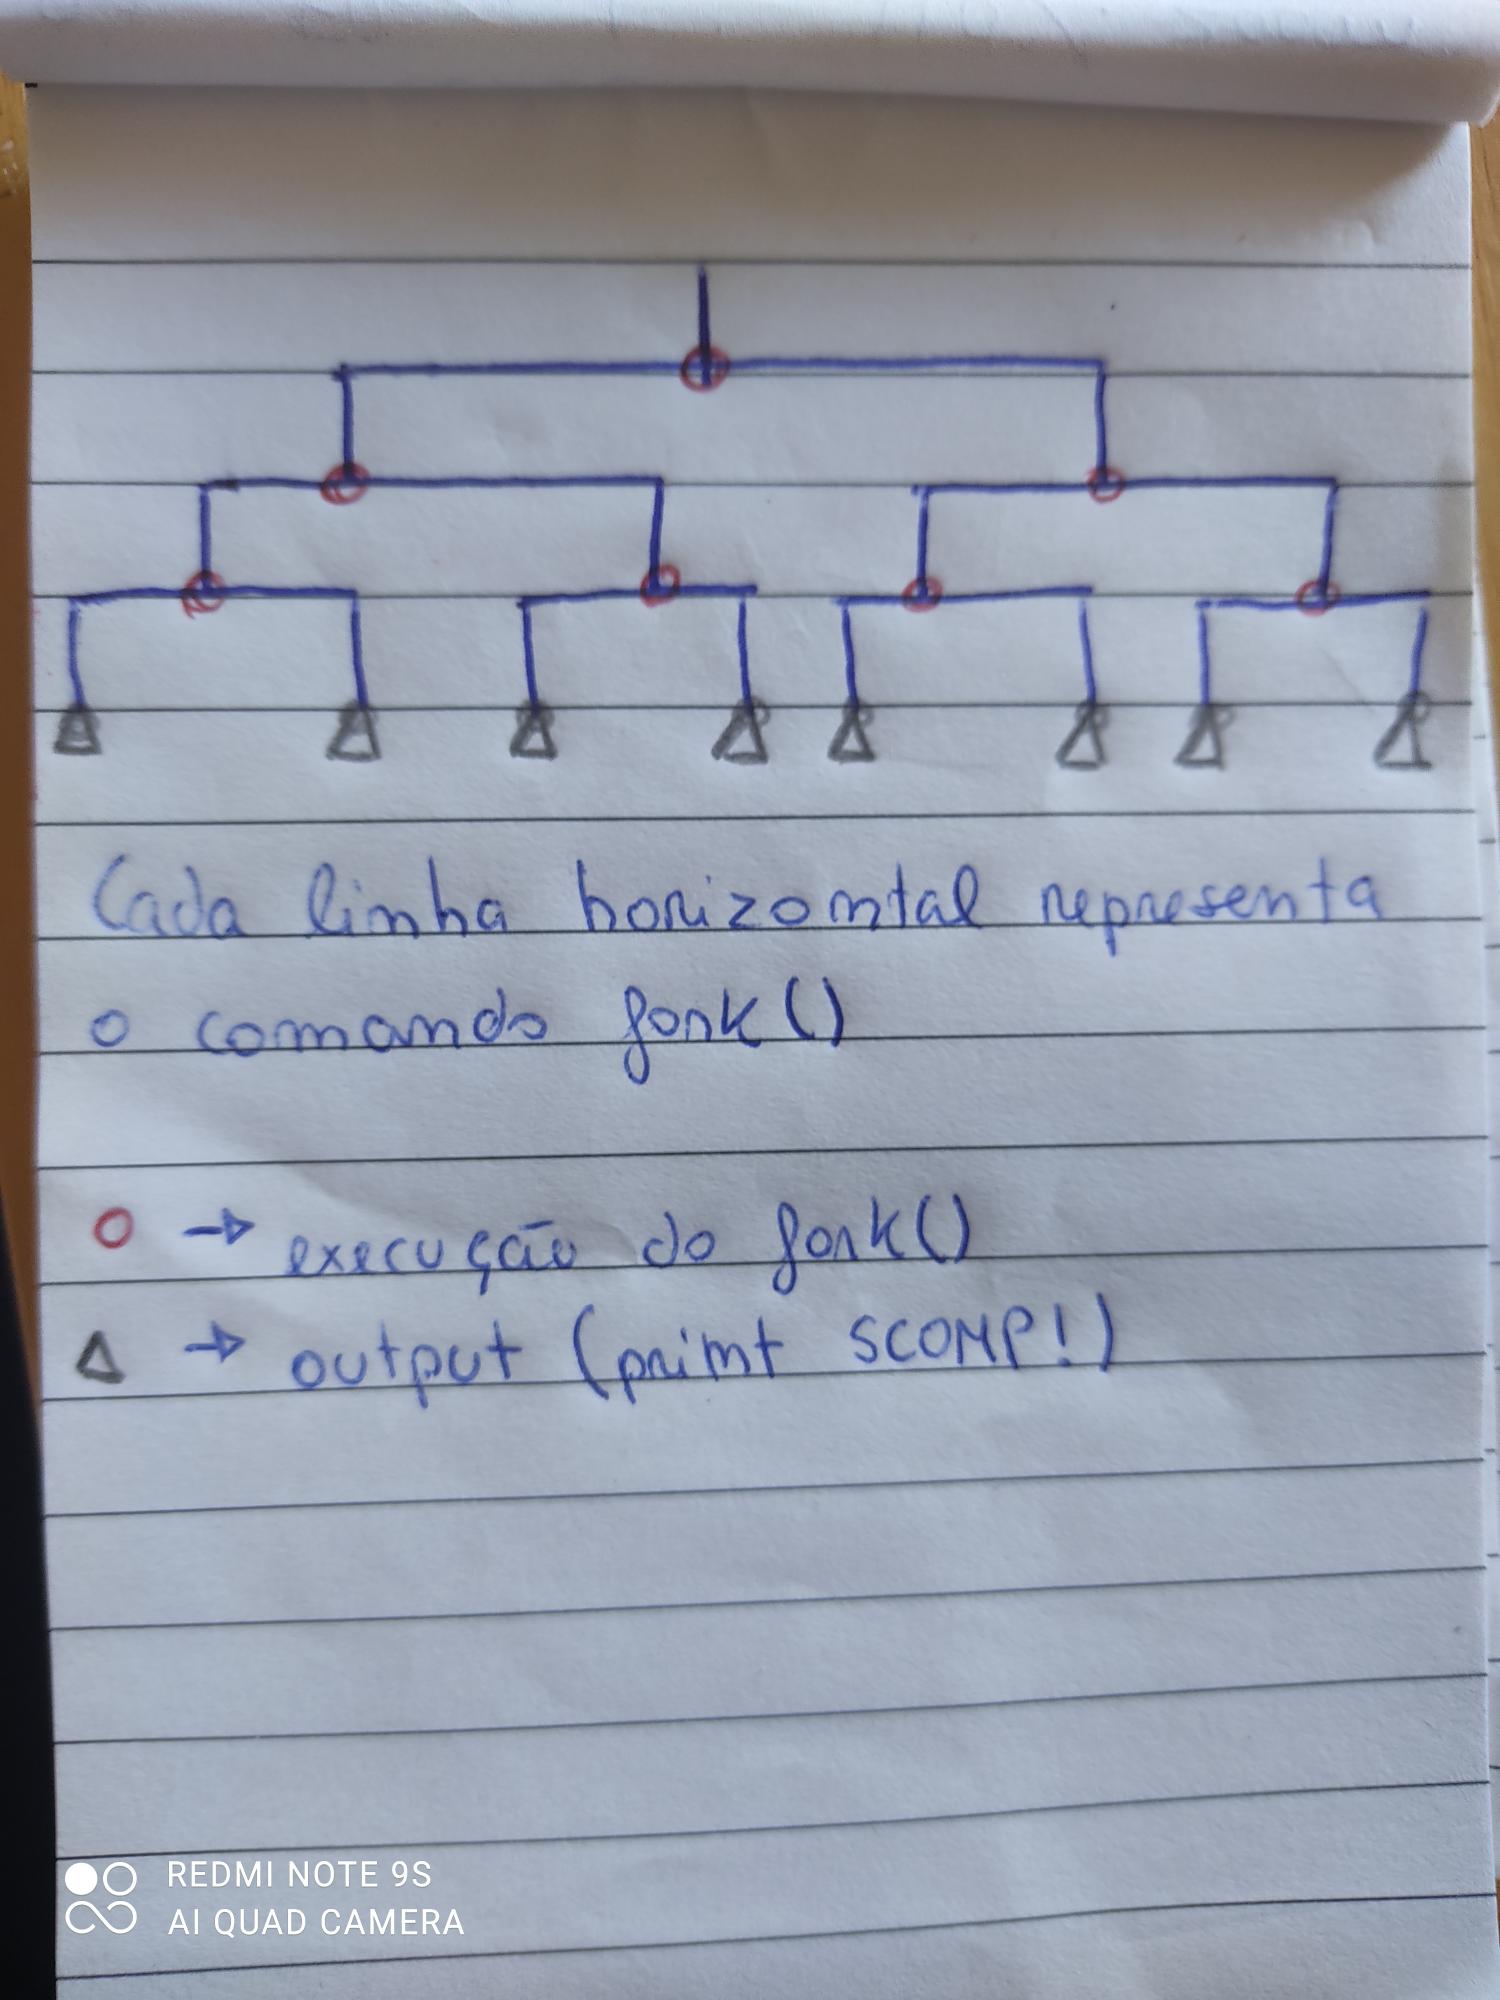 Cada linha horizontal representa
o comando fork()
O → execução do fork()
Δ → output (print SCOMP!)
REDMI NOTE 9S
AI QUAD CAMERA